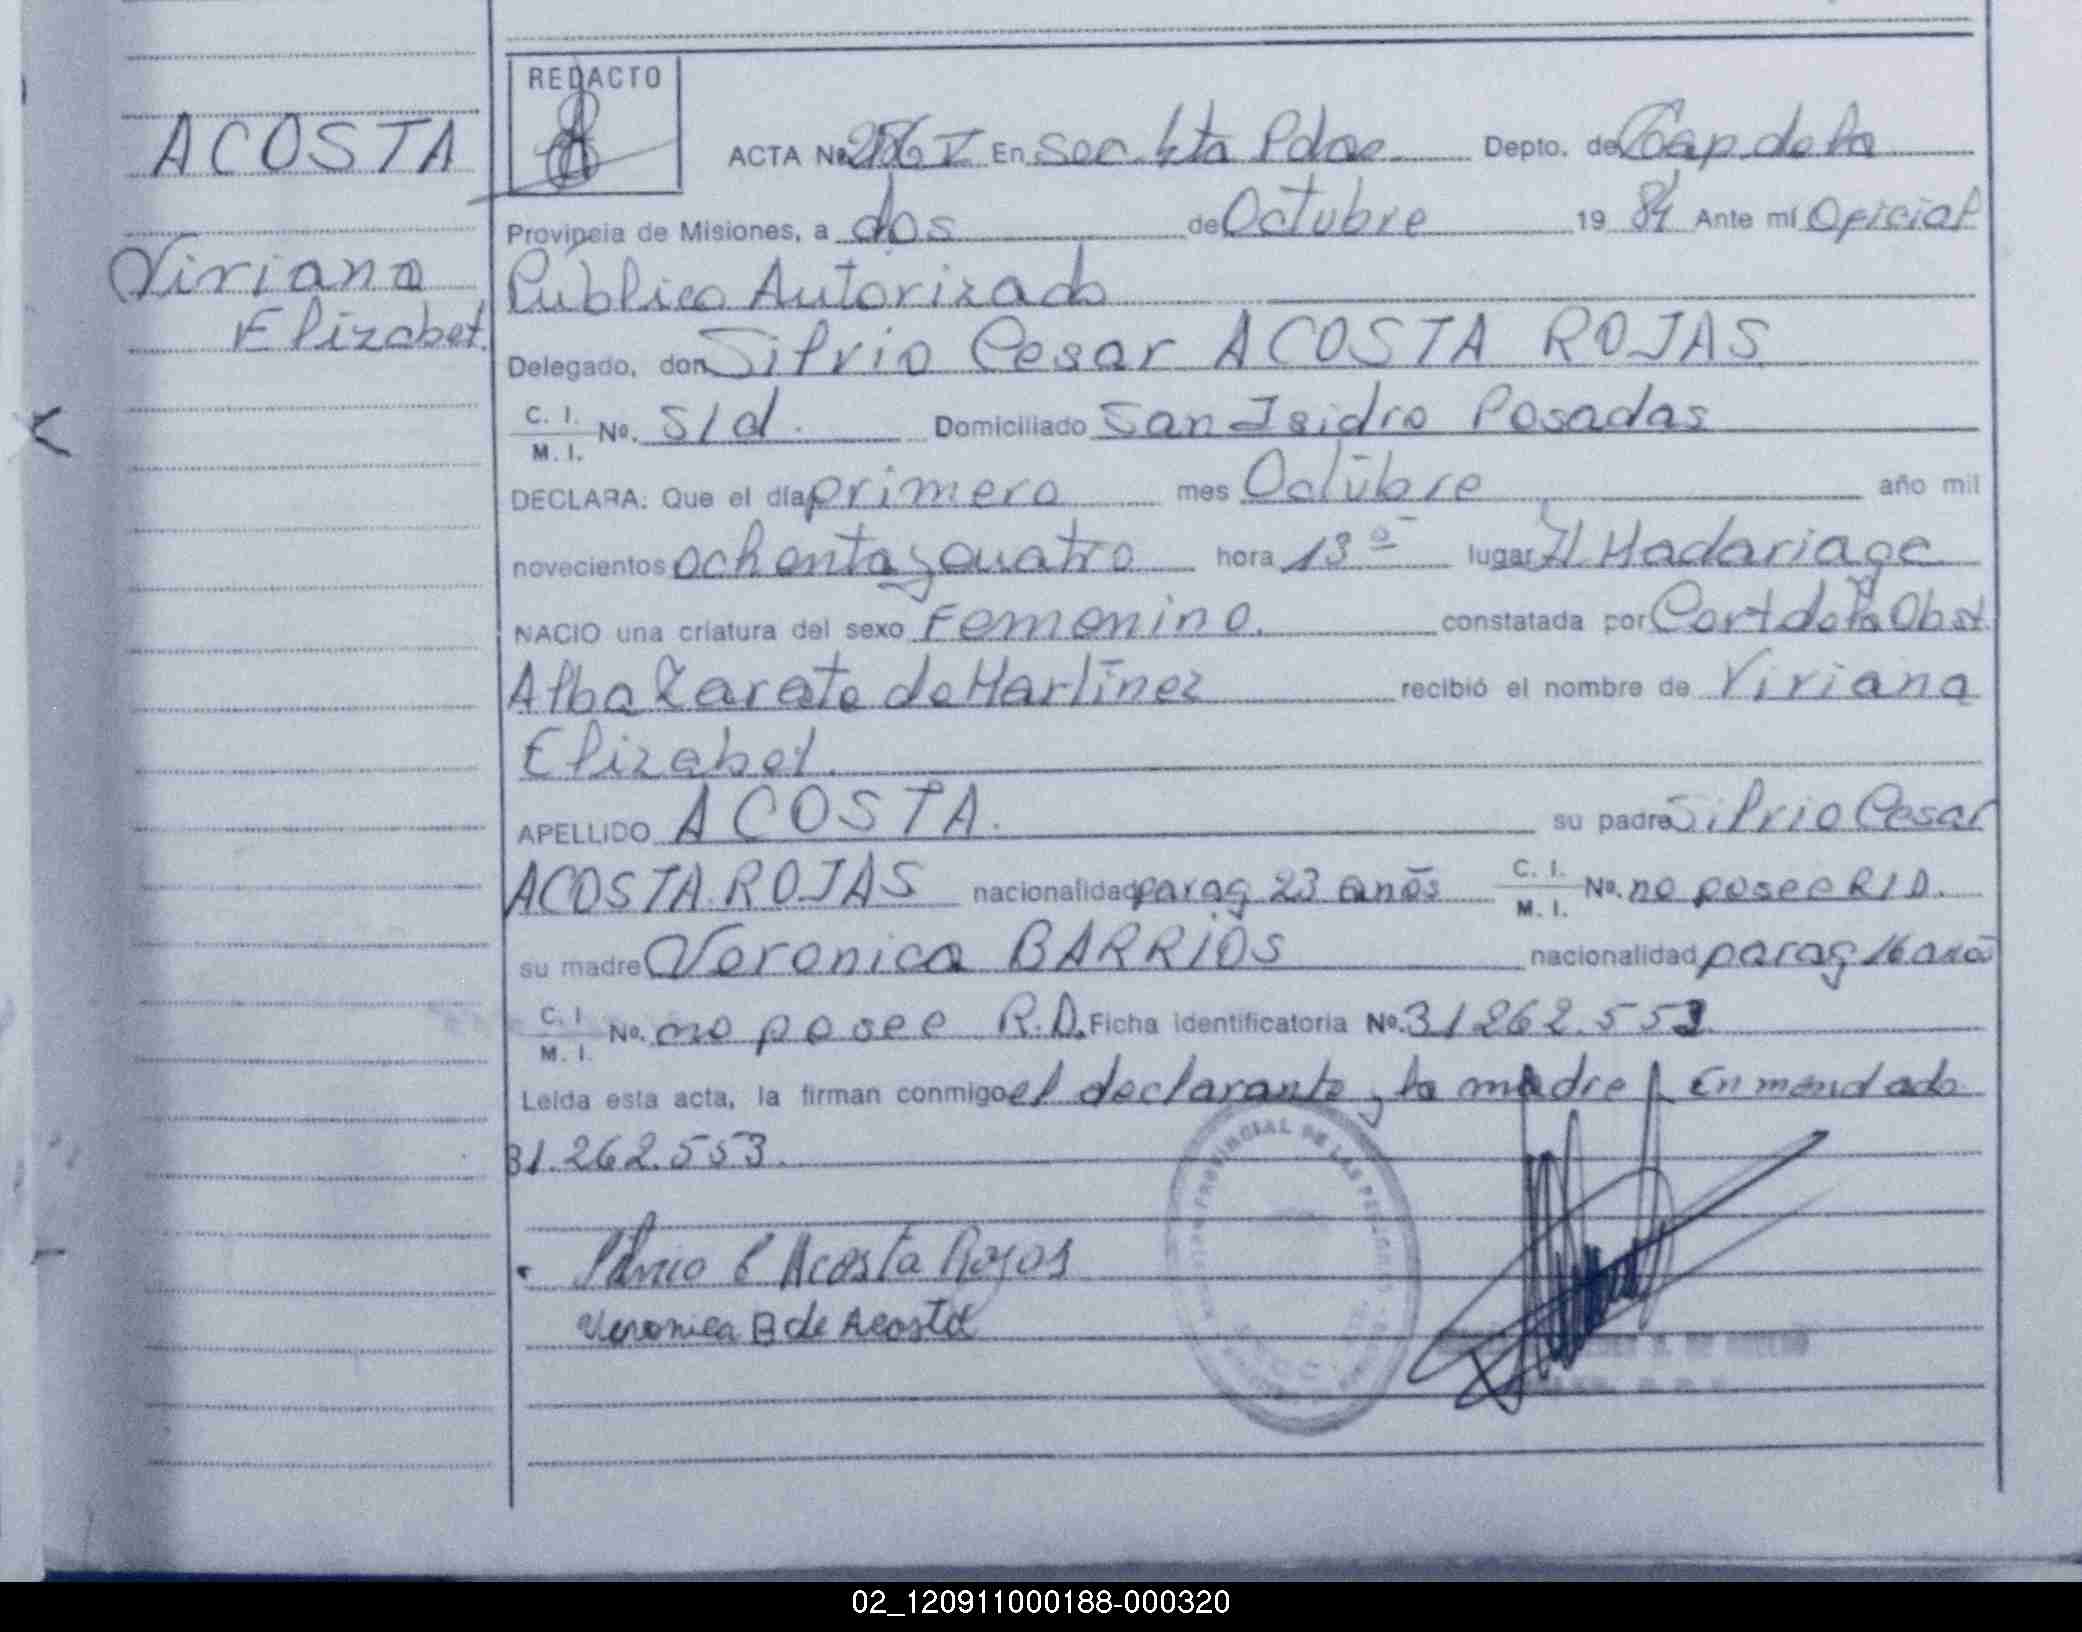 REDACTO
ACOSTA
Viviana
Elizabet.
ACTA Nº 2567 En Sec 4ta Pdas Depto. de Cap de la
Provincia de Misiones, a dos de Octubre 19 84 Ante mí Oficial
Público Autorizado
Delegado, don Silvio Cesar ACOSTA ROJAS
C. I.
M. I. Nº. S/d. Domiciliado San Isidro Posadas
DECLARA: Que el día primero mes Octubre año mil
novecientos ochenta y cuatro hora 13 º lugar H Madariaga
NACIO una criatura del sexo Femenino. constatada por Cert de la Obst.
Alba Zarate de Martínez recibió el nombre de Viviana
Elizabet.
APELLIDO ACOSTA. su padre Silvio Cesar
ACOSTA ROJAS nacionalidad parag 23 años C. I.
M. I. Nº. no posee R/D.
su madre Veronica BARRIOS nacionalidad parag 16 años
C. I.
M. I. Nº. no posee R.D. Ficha identificatoria Nº. 31262.553
Leída esta acta, la firman conmigo el declarante y la madre Enmendado
31.262.553.
Silvio C Acosta Rojas
Veronica B de Acosta
02_120911000188-000320